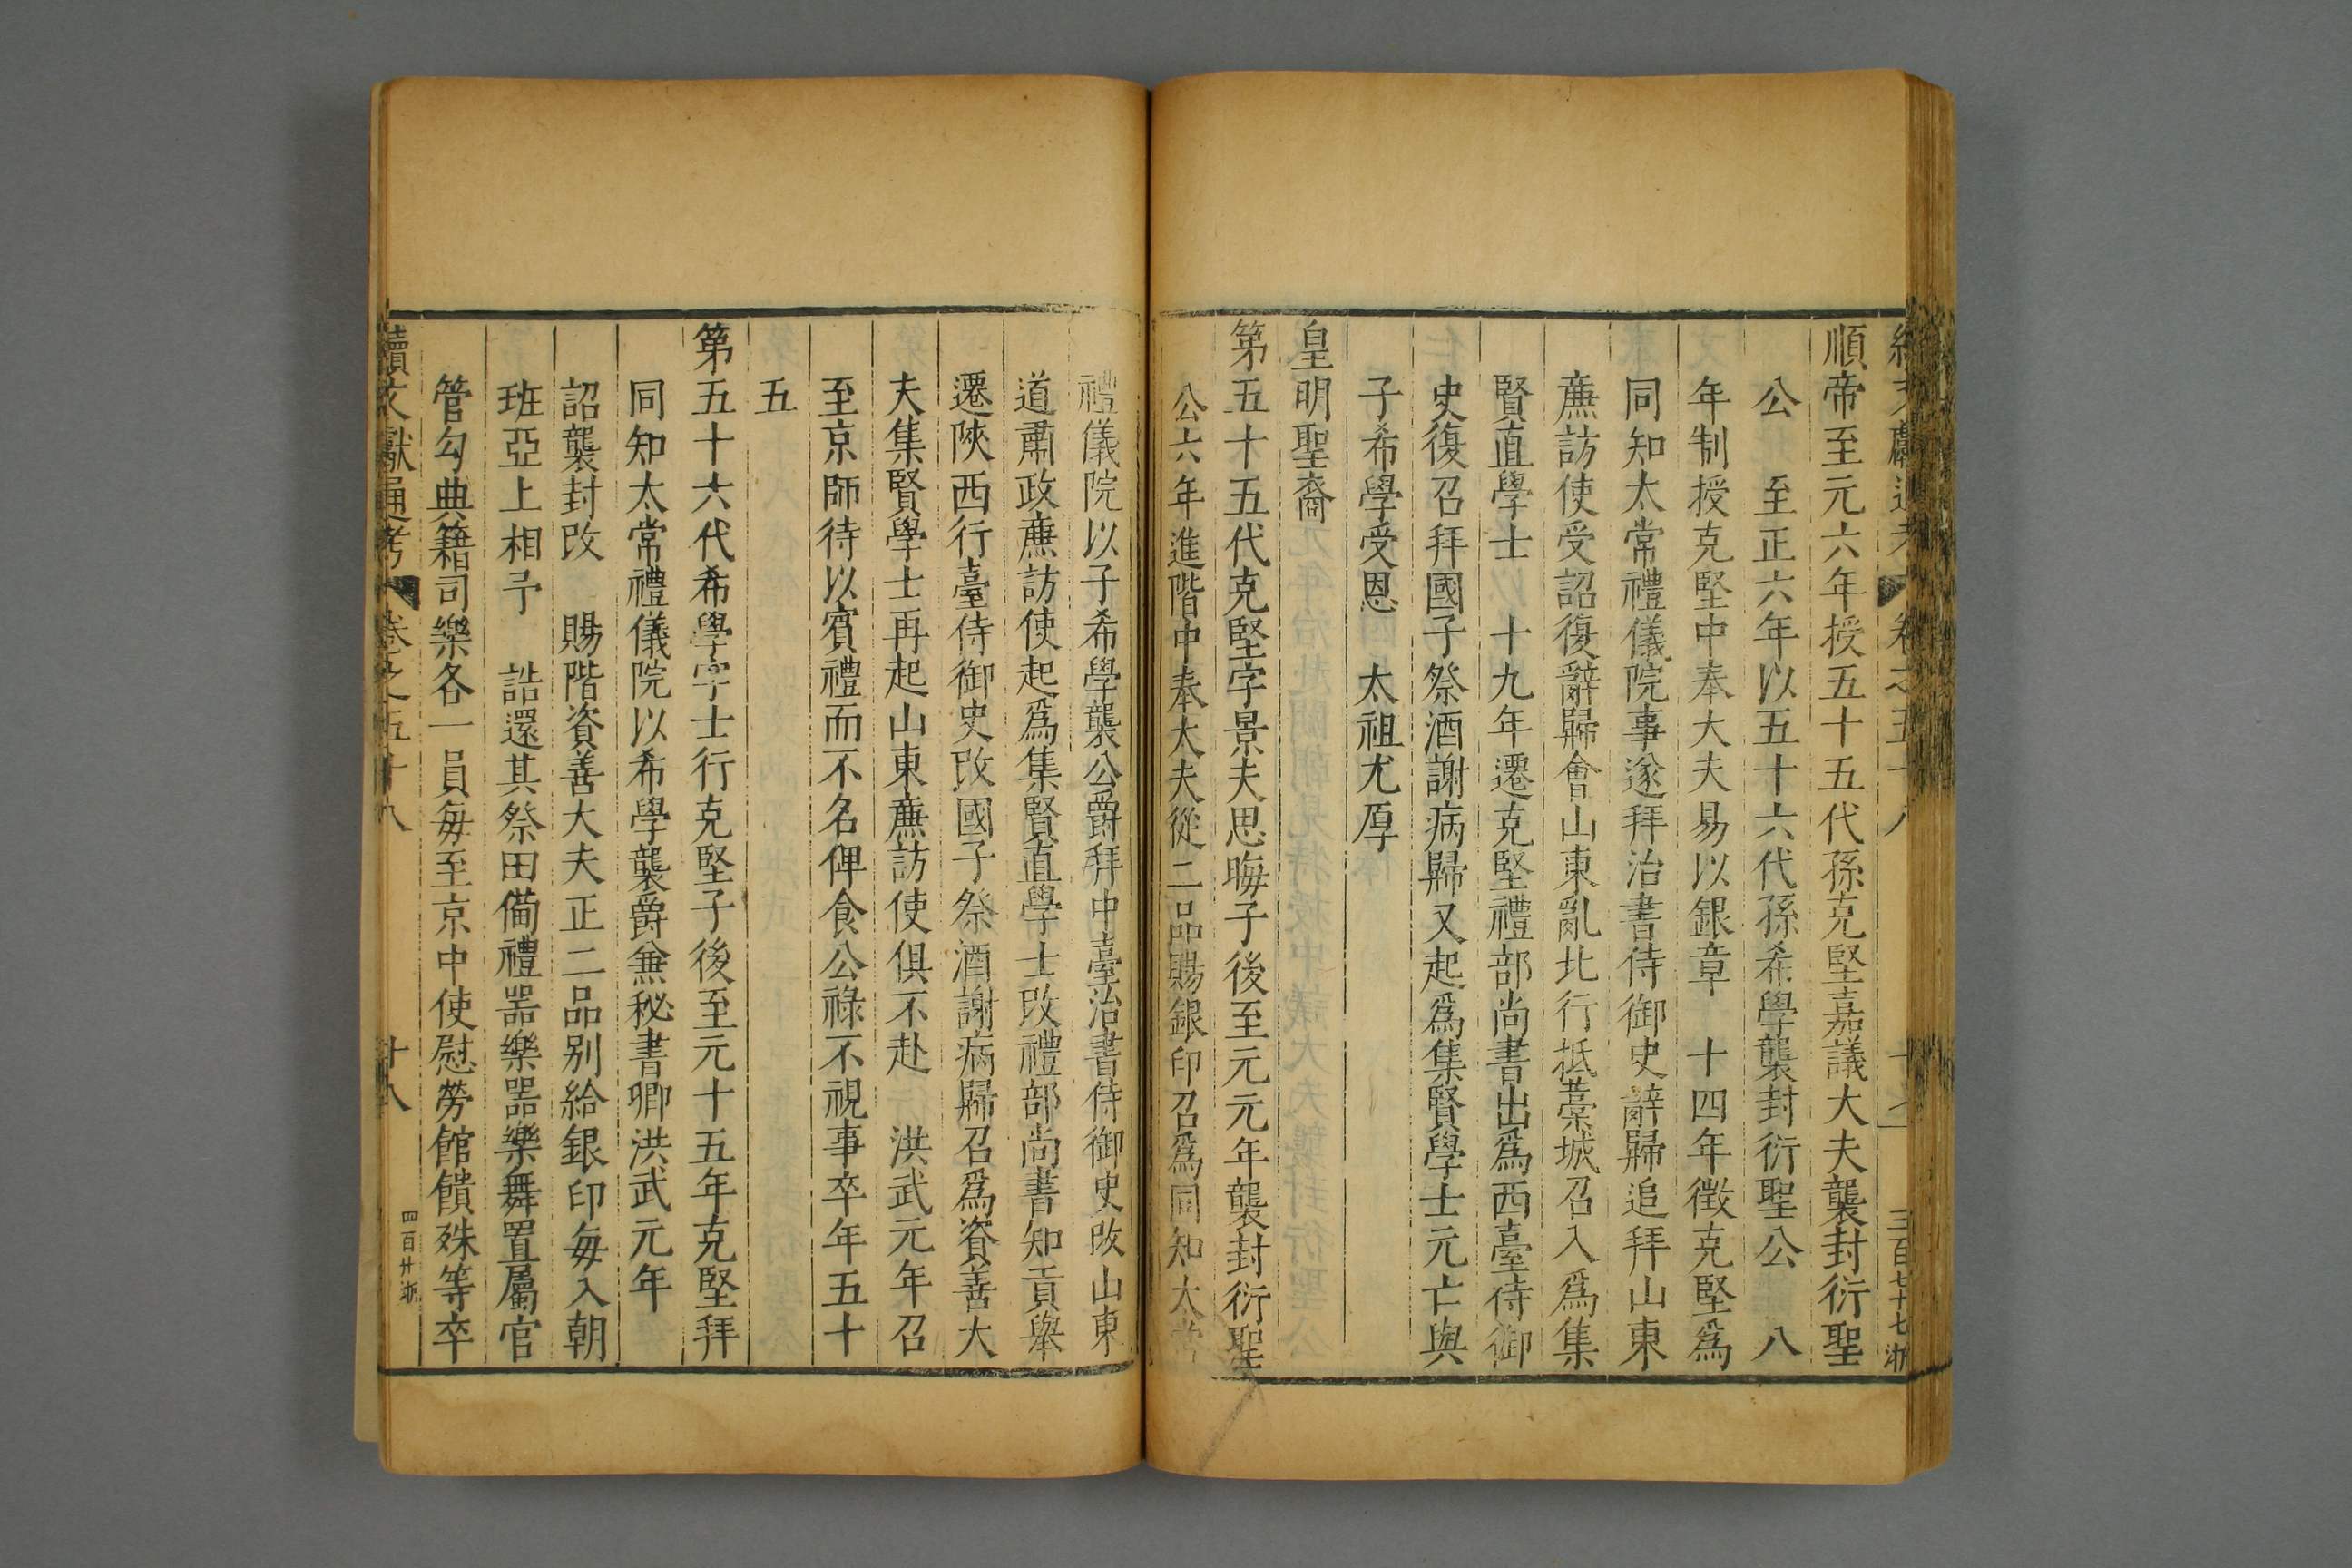 續文獻通考 卷之五十八 十七 三百七十七 浙
順帝至元六年授五十五代孫克堅嘉議大夫襲封衍聖
公 至正六年以五十六代孫希學襲封衍聖公 八
年制授克堅中奉大夫易以銀章 十四年徴克堅爲
同知太常禮儀院事遂拜治書侍御史辭歸追拜山東
亷訪使受詔復辭歸會山東亂北行抵藁城召入爲集
賢直學士 十九年遷克堅禮部尚書出爲西臺侍御
史復召拜國子祭酒謝病歸又起爲集賢學士元亡與
子希學受恩 太祖尤厚
皇明聖裔
第五十五代克堅字景夫思晦子後至元元年襲封衍聖
公六年進階中奉大夫從二品賜銀印召爲同知太常
禮儀院以子希學襲公爵拜中臺治書侍御史改山東
道肅政亷訪使起爲集賢直學士改禮部尚書知貢舉
遷陜西行臺侍御史改國子祭酒謝病歸召爲資善大
夫集賢學士再起山東亷訪使俱不赴 洪武元年召
至京師待以賓禮而不名俾食公祿不視事卒年五十
五
第五十六代希學字士行克堅子後至元十五年克堅拜
同知太常禮儀院以希學襲爵兼秘書卿洪武元年
詔襲封改 賜階資善大夫正二品别給銀印每入朝
班亞上相予 誥還其祭田備禮噐樂噐樂舞置屬官
管勾典籍司樂各一員每至京中使慰勞館饋殊等卒
續文獻通考 卷之五十八 十八 四百廿 浙